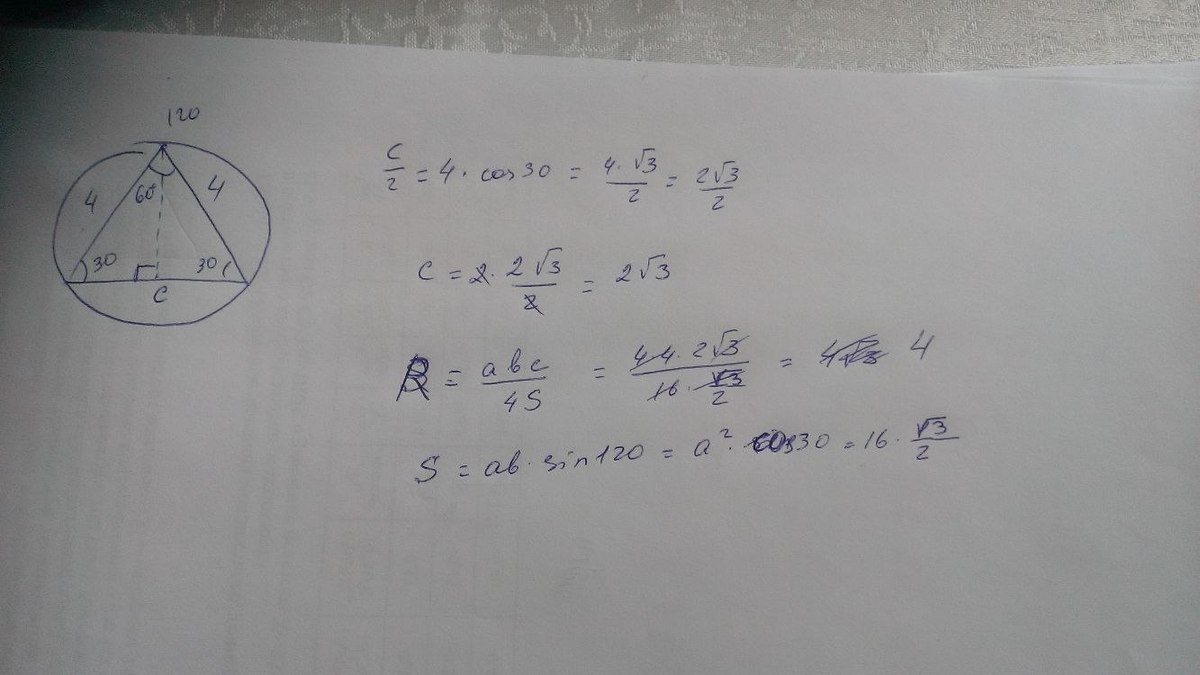 120
4 60° 4
30 30
c
c/2 = 4 · cos30 = 4·√3/2 = 2√3/2
c = 2 · 2√3/2 = 2√3
R = abc/4S = 44·2√3/16·√3/2 = 4√3 4
S = ab · sin120 = a² · cos30 = 16 · √3/2